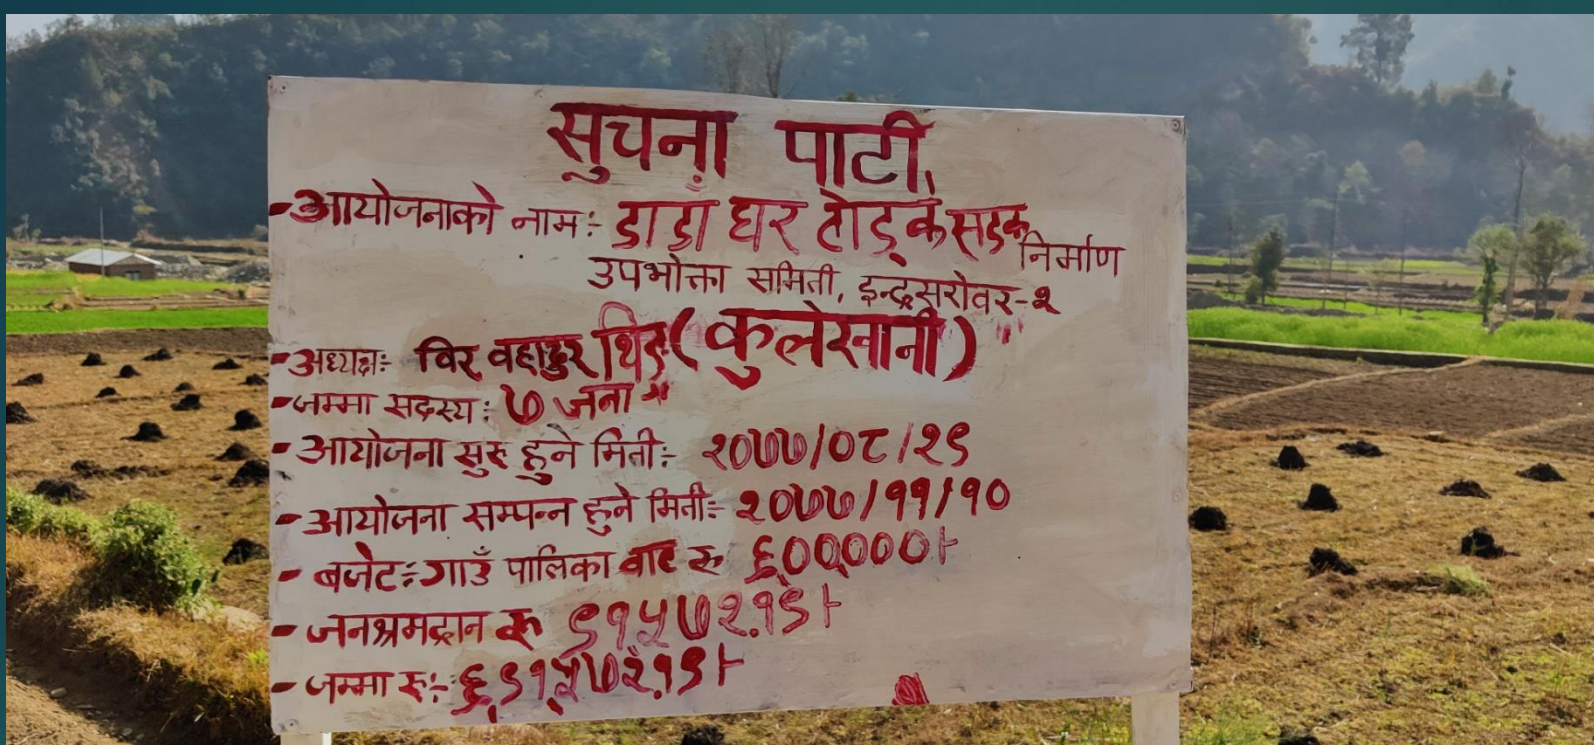 सुचना पाटी
- आयोजनाको नाम:- डाँडा घर टोड्के सडक निर्माण
उपभोक्ता समिती, इन्द्रसरोवर-२
- अध्यक्ष:- विर वहादुर थिङ (कुलेखानी)
- जम्मा सदस्य: ७ जना "
- आयोजना सुरु हुने मिती:- २०७७/०८/२९
- आयोजना सम्पन्न हुने मिती:- २०७७/११/१०
- बजेट:- गाउँ पालिका वाट रु ६,००,०००।-
- जनश्रमदान रु ९१५७२.१९।-
- जम्मा रु:- ६,९१,५७२.१९।-